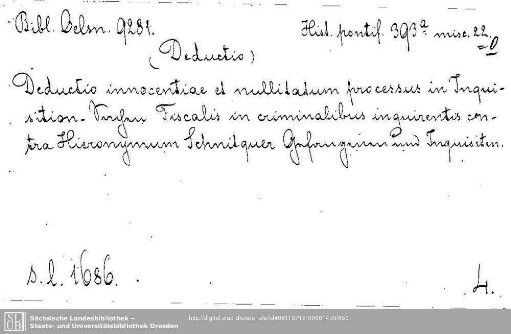 Bibl. Oelsn. 9281.
Hist. pontif. 393ª misc. 22.
(Deductio)
Deductio innocentiae et nullitatum processus in Inqui-
sition-                Fiscalis in criminalibus inquirentis con-
tra Hieronymum Schnitquer Gefangenen und Inquisiten.
s. l. 1686.
4.
SLUB
Sächsische Landesbibliothek –
Staats- und Universitätsbibliothek Dresden